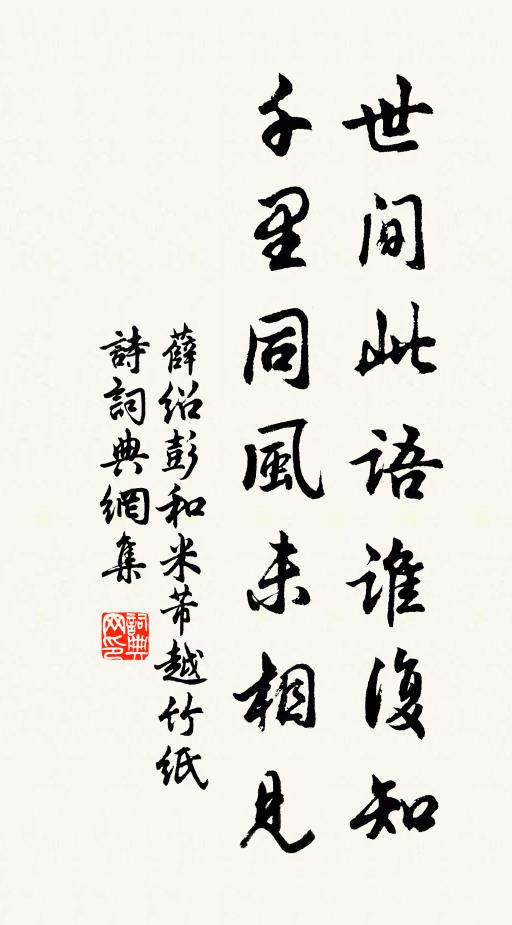 世間此語誰復知
千里同風未相見
薛紹彭和米芾越竹紙
詩詞典網集
詞典網印